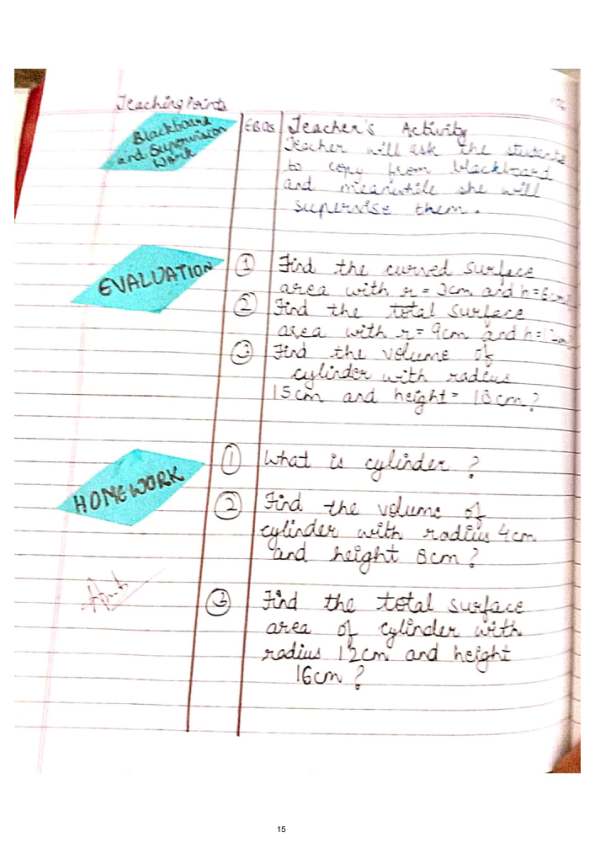 Teaching Points
Blackboard
and Supervision
Work
EBOs
Teacher's Activity
Teacher will ask the students
to copy from blackboard
and meanwhile she will
supervise them.
EVALUATION
① Find the curved surface
area with r = 3cm and h=
② Find the total surface
area with r = 9cm and h=
③ Find the volume of
cylinder with radius
15cm and height = 18cm?
HOMEWORK
① What is cylinder ?
② Find the volume of
cylinder with radius 4cm
and height 8cm ?
③ Find the total surface
area of cylinder with
radius 12cm and height
16cm ?
15